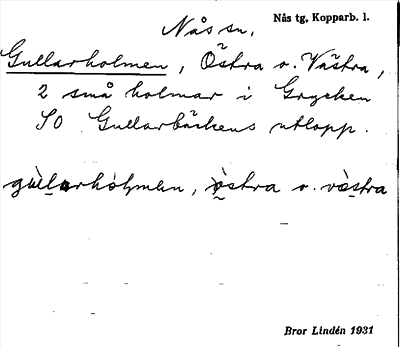 Nås sn.
Nås tg, Kopparb. l.
Gullarholmen, Östra o. Västra,
2 små holmar i Grycken
SO Gullarbäckens utlopp.
gùllarhòlmen, östra o. västra
Bror Lindén 1931